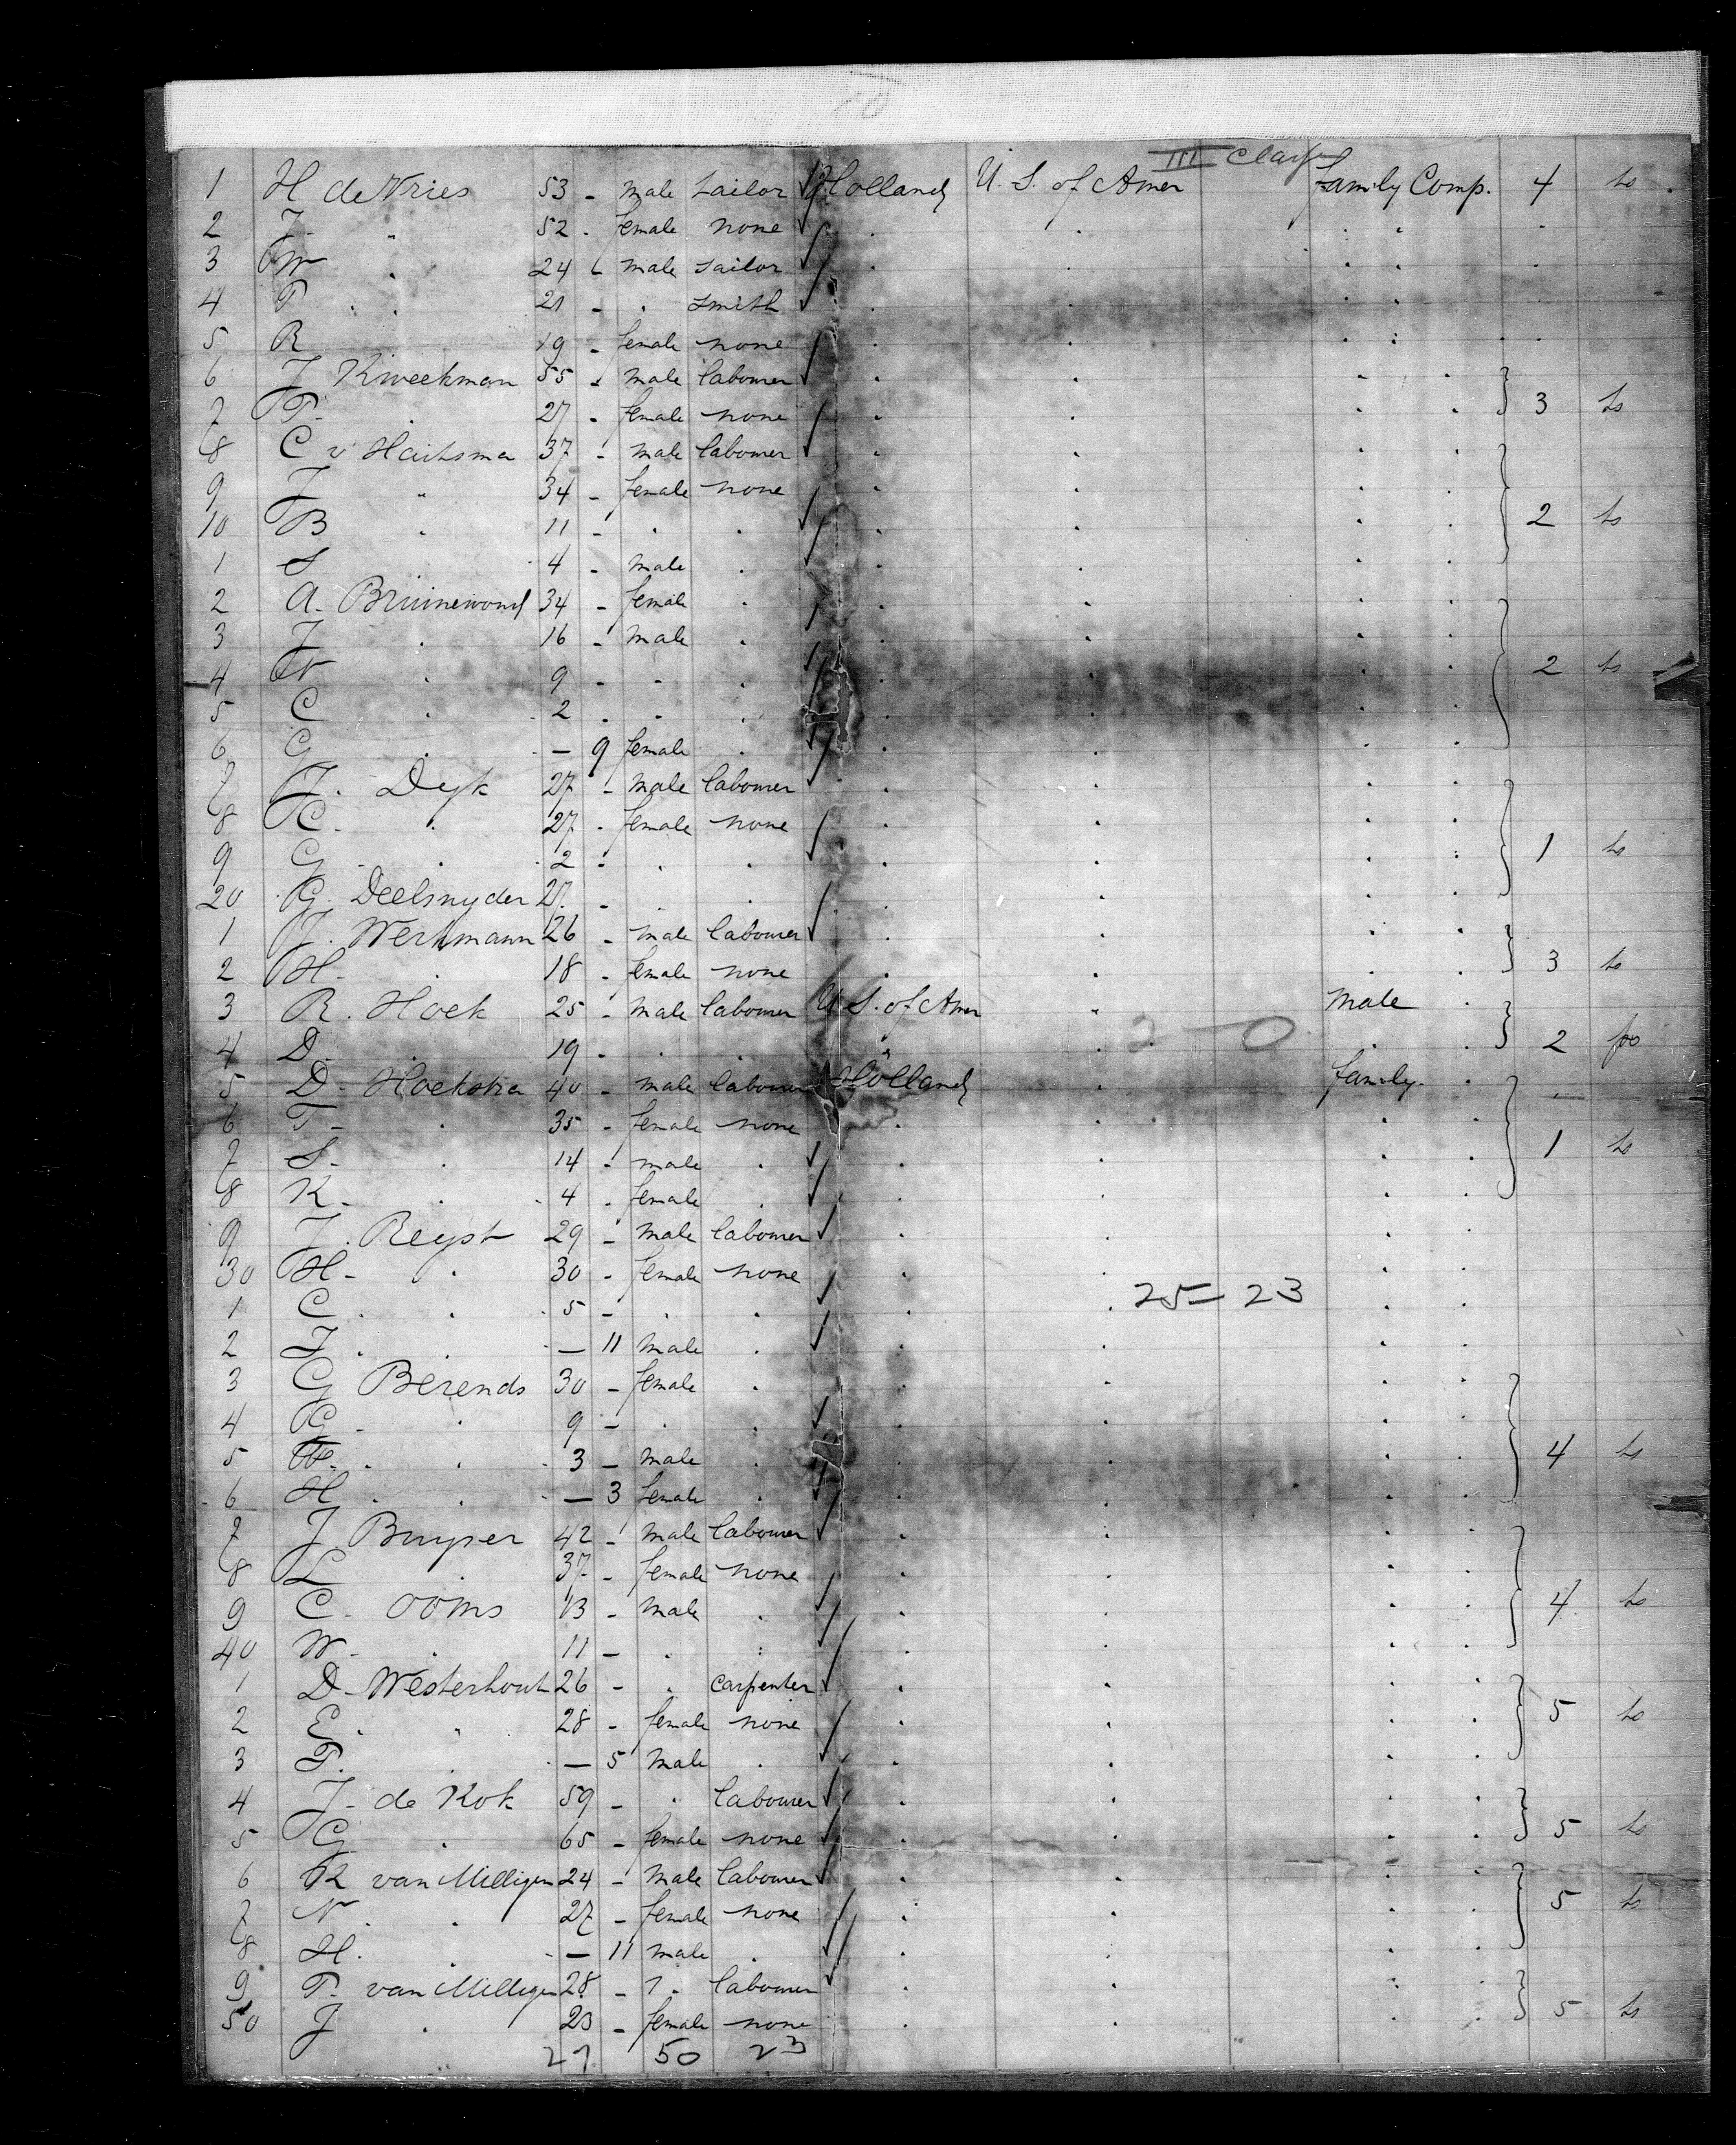 III Class
1 H de Vries 53 - male tailor Holland U. S. of Amer family Comp. 4 to
2 J. " 52 - female none
3 W " 24 - male tailor
4 P " 21 - " smith
5 R 19 - female none
6 J Kweekman 55 - male labourer
7 P. " 27 - female none } 3 to
8 C v Haitsma 37 - male labourer
9 J " 34 - female none
10 B " 11 - " " } 2 to
1 S 4 - male "
2 A. Bruinewoud 34 - female "
3 J " 16 - male "
4 N " 9 - " " } 2 to
5 C " 2 - " "
6 G " — 9 female "
7 J. Dyk 27 - male labourer
8 C. " 27 - female none
9 G - " 2 - " " } 1 to
20 G. Deelsnyder 27 - " "
1 J. Werkmann 26 - male labourer
2 H. " 18 - female none } 3 to
3 R. Hoek 25 - male labourer U S. of Amer " male
4 D. " 19 - " " 2 — 0 } 2 fro
5 D - Hoekstra 40 - male labourer Holland " family
6 T - " 35 - female none
7 S - " 14 - male " } 1 to
8 K - " 4 - female "
9 J. Reyst 29 - male labourer
30 H - " 30 - female none
1 C. " 5 - " " 25 — 23
2 J. " — 11 male "
3 G Berends 30 - female "
4 G - " 9 - " "
5 W. " 3 - male " } 4 to
6 H. " — 3 female "
7 J Buyser 42 - male labourer
8 L 37 - female none
9 C - Ooms 13 - male " } 4 to
40 W - " 11 - " "
1 D - Westerhout 26 - " carpenter
2 E. " 28 - female none } 5 to
3 P. " — 5 male "
4 J - de Kok 59 - " labourer
5 G " 65 - female none } 5 to
6 R van Milligen 24 - male labourer
7 N. " 27 - female none } 5 to
8 H. " — 11 male "
9 P. van Milligen 28 - " labourer
50 J " 23 - female none } 5 to
27 50 23